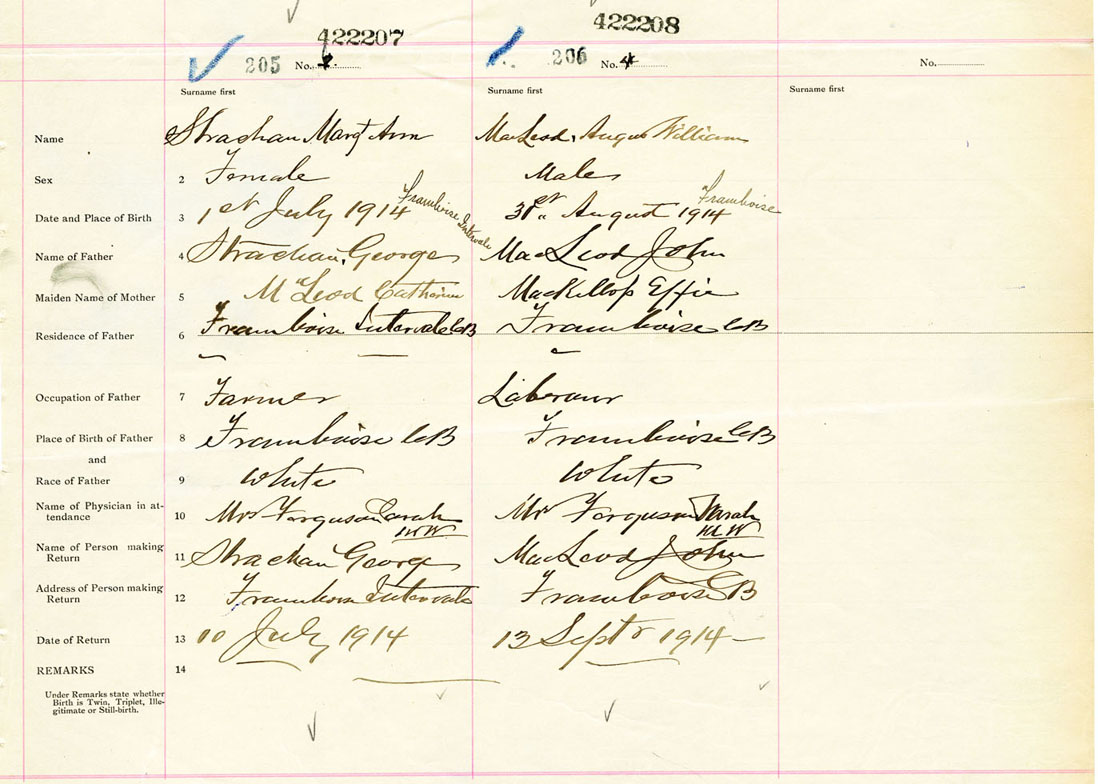 422207 422208
205 No. 4 206 No. 4 No.
Surname first Surname first Surname first
Name Strachan Margt Ann MacLeod, Angus William
Sex 2 Female Male
Framboise Intervale Framboise
Date and Place of Birth 3 1st July 1914 31st August 1914
Name of Father 4 Strachan, George MacLeod John
Maiden Name of Mother 5 McLeod Catherine MacKillop Effie
Residence of Father 6 Framboise Intervale CB Framboise CB
Occupation of Father 7 Farmer Laborour
Place of Birth of Father 8 Framboise CB Framboise CB
and
Race of Father 9 White White
Name of Physician in at-
tendance 10 Mrs Ferguson Sarah Mrs Ferguson Sarah
Name of Person making
Return 11 Strachan George MacLeod John
Address of Person making
Return 12 Framboise Intervale Framboise CB
Date of Return 13 10 July 1914 13 Septr 1914
REMARKS 14
Under Remarks state whether
Birth is Twin, Triplet, Ille-
gitimate or Still-birth.